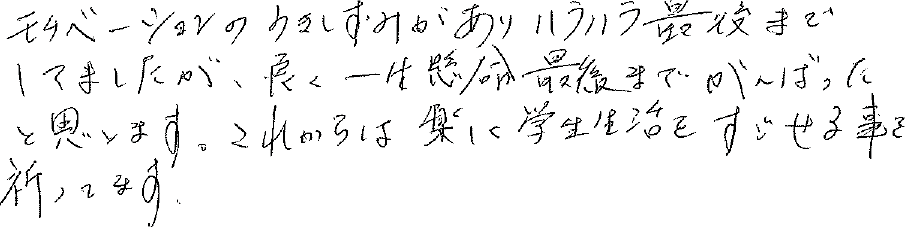 モチベーションのうきしずみがありハラハラ最後まで
してましたが、良く一生懸命最後までがんばった
と思います。これからは楽しく学生生活をすごせる事を
祈ってます.